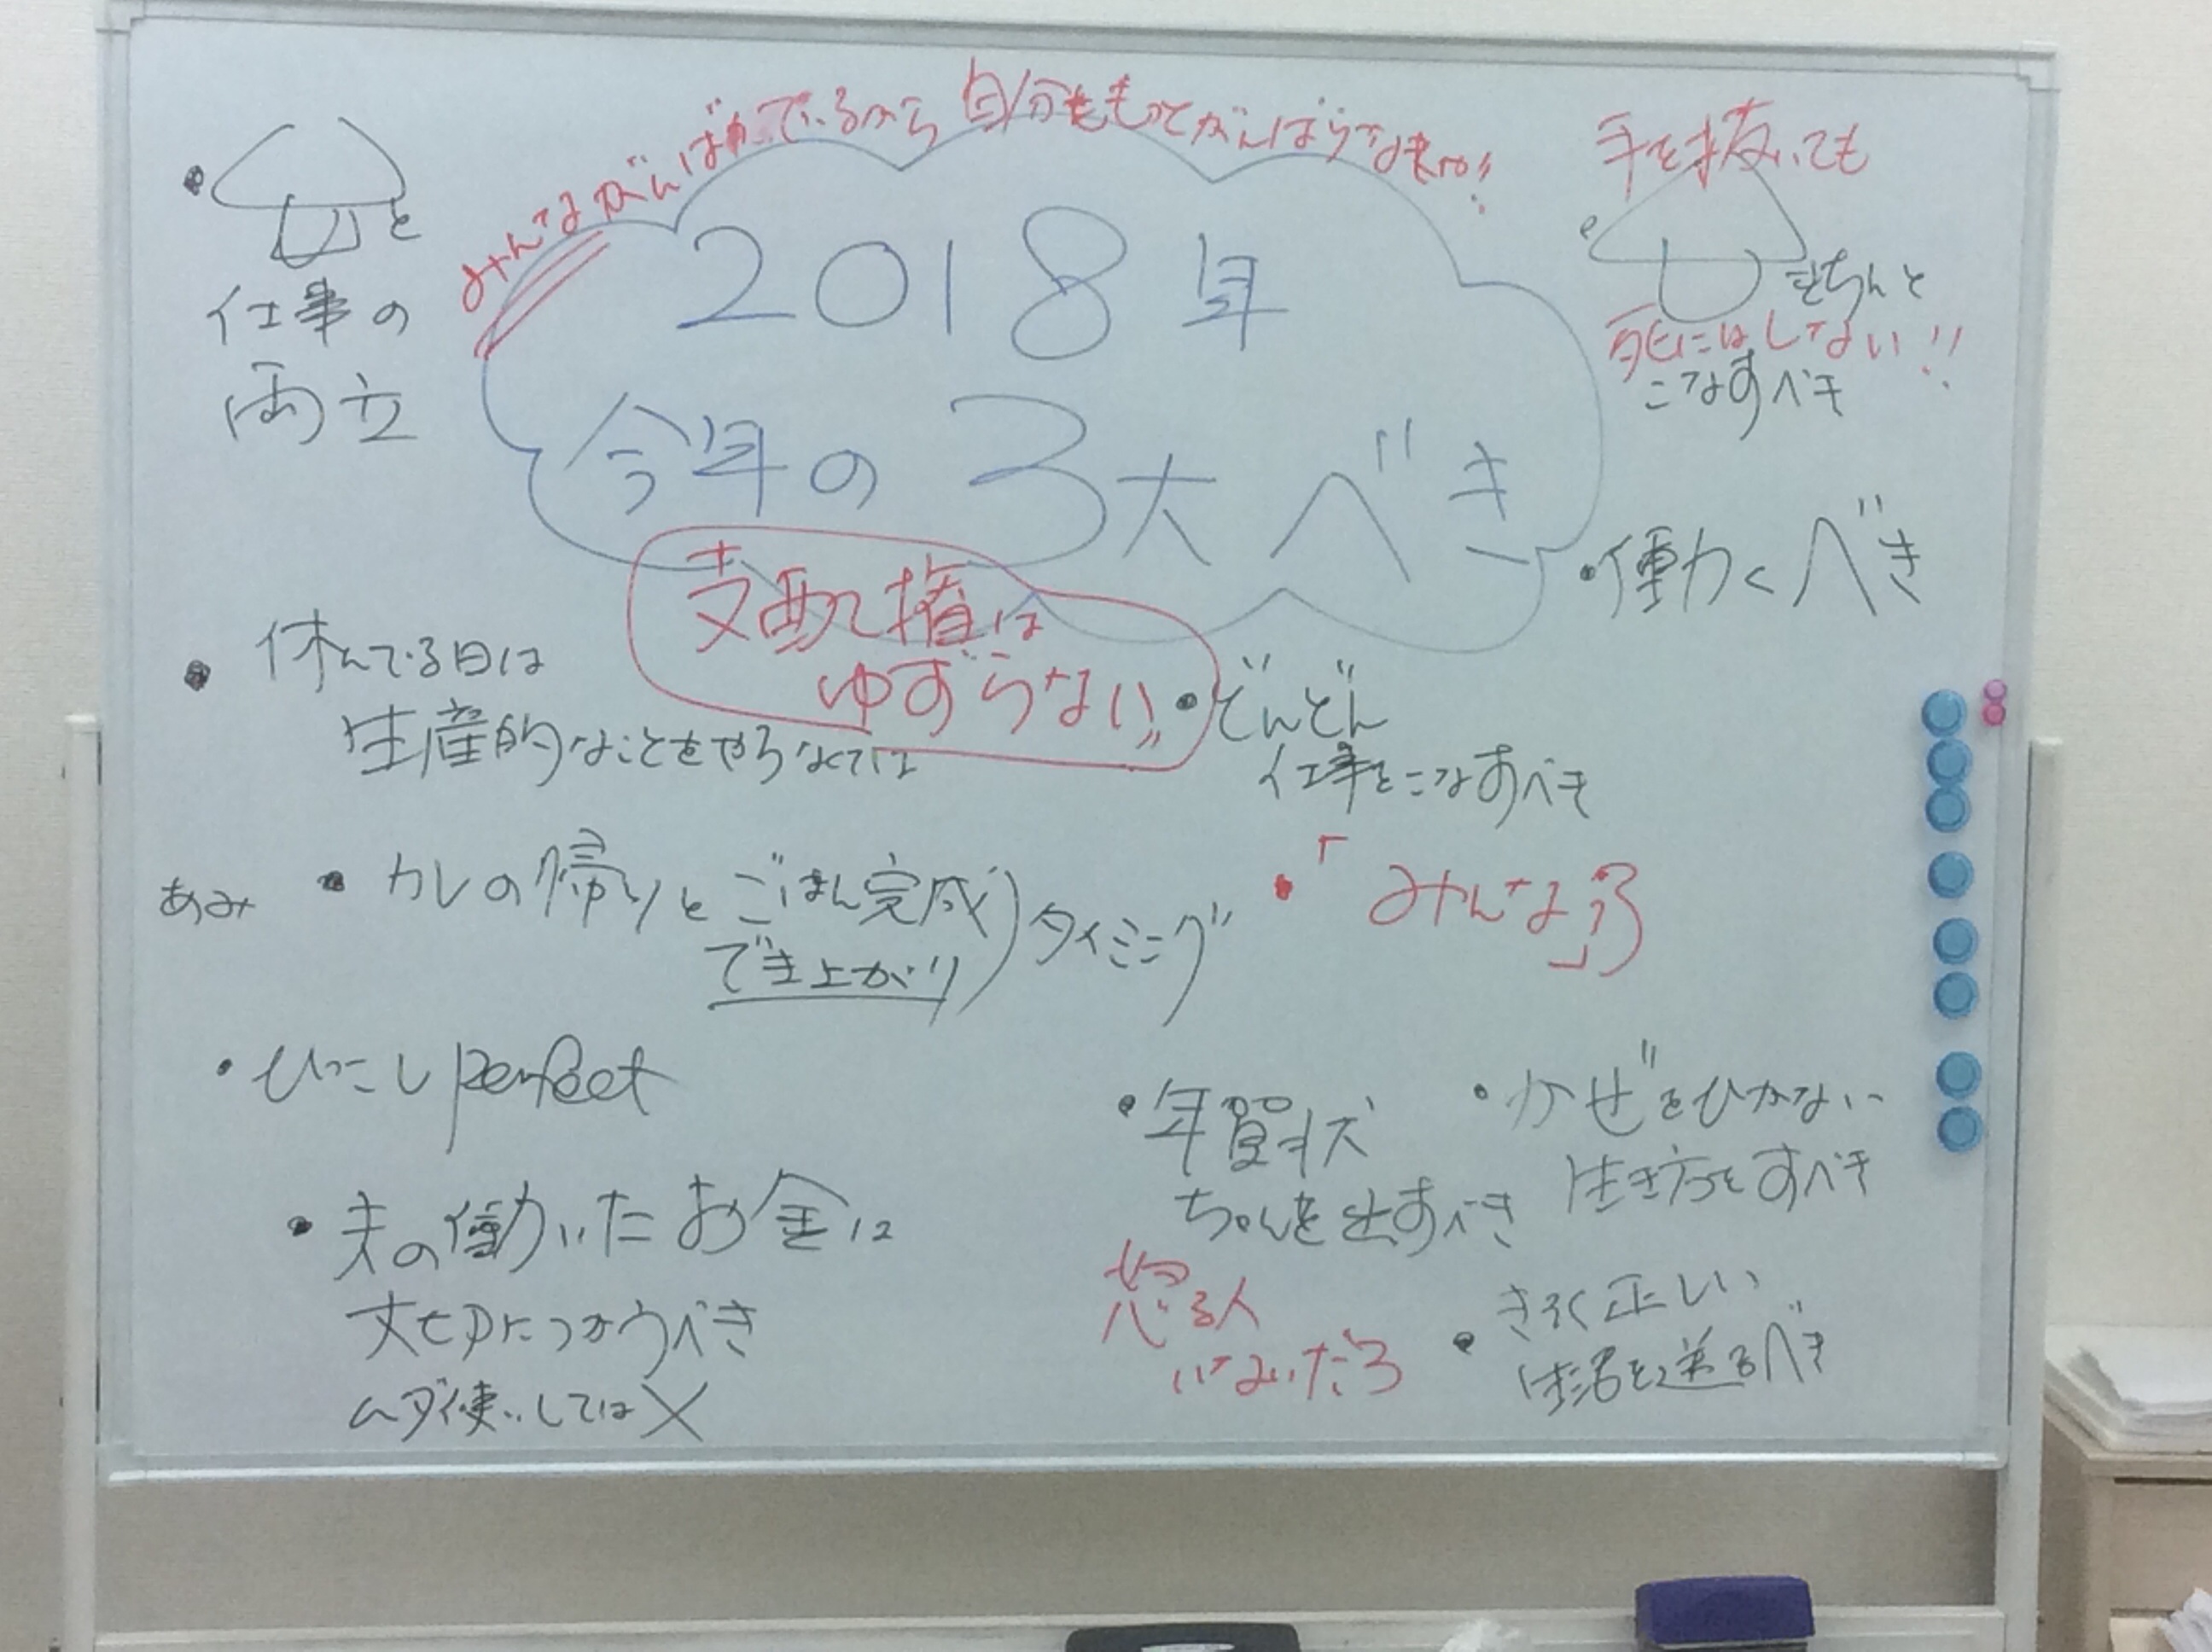 みんながんばっているから自分ももっとがんばらなきゃ!!
2018年
今年の3大べき
支配権は
ゆずらない!!
と
仕事の
両立
手を抜いても
きちんと
死にはしない!!
こなすべき
・働くべき
・休んでる日は
生産的なことをやらなくては
・どんどん
仕事をこなすべき
あみ
・カレの帰りとごはん完成
でき上がり
タイミング
・「みんな」
・ひっこし perfect
・年賀状
ちゃんと出すべき
・かぜをひかない
生き方をすべき
・夫の働いたお金は
大切につかうべき
ムダ使いしては×
怒る人
いないだろ
・きそく正しい
生活を送るべき